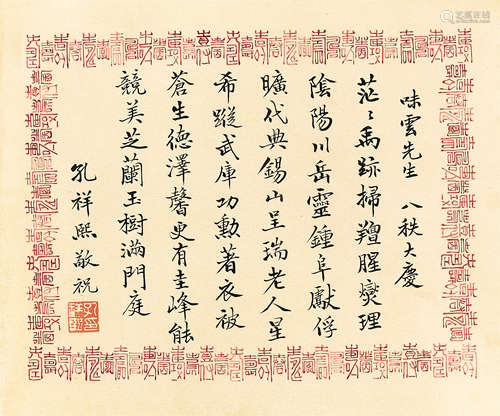 味雲先生 八秩大慶
茫々禹跡掃羶腥燮理
陰陽川岳靈鍾阜獻俘
曠代典錫山呈瑞老人星
希蹤武庫功勳著衣被
蒼生德澤馨更有圭峰能
競美芝蘭玉樹滿門庭
孔祥熙敬祝